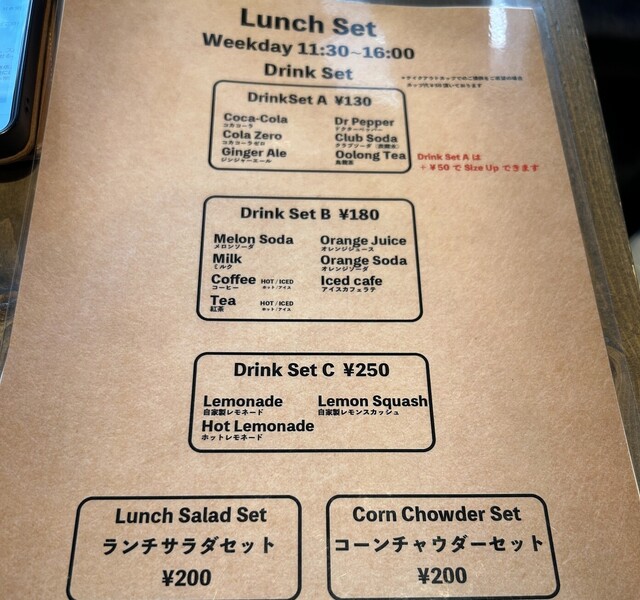 Lunch Set
Weekday 11:30~16:00
Drink Set
DrinkSet A ¥130
Coca-Cola
コカコーラ
Cola Zero
コカコーラゼロ
Ginger Ale
ジンジャーエール
Dr Pepper
ドクターペッパー
Club Soda
クラブソーダ（炭酸水）
Oolong Tea
烏龍茶
Drink Set A は
＋￥50 で Size Up できます
Drink Set B ¥180
Melon Soda
メロンソーダ
Milk
ミルク
Coffee HOT / ICED
コーヒー ホット/アイス
Tea HOT / ICED
紅茶 ホット/アイス
Orange Juice
オレンジジュース
Orange Soda
オレンジソーダ
Iced cafe
アイスカフェラテ
Drink Set C ¥250
Lemonade
自家製レモネード
Hot Lemonade
ホットレモネード
Lemon Squash
自家製レモンスカッシュ
Lunch Salad Set
ランチサラダセット
¥200
Corn Chowder Set
コーンチャウダーセット
¥200